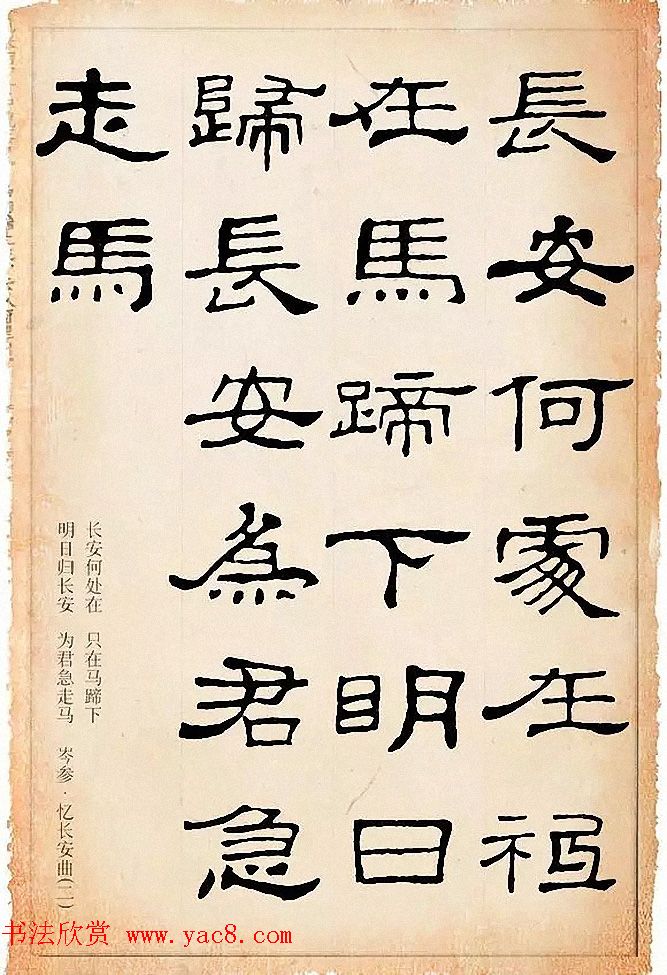 長安何處在祗
在馬蹄下明日
歸長安為君急
走馬
长安何处在 只在马蹄下
明日归长安 为君急走马 岑参·忆长安曲(二)
书法欣赏 www.yac8.com